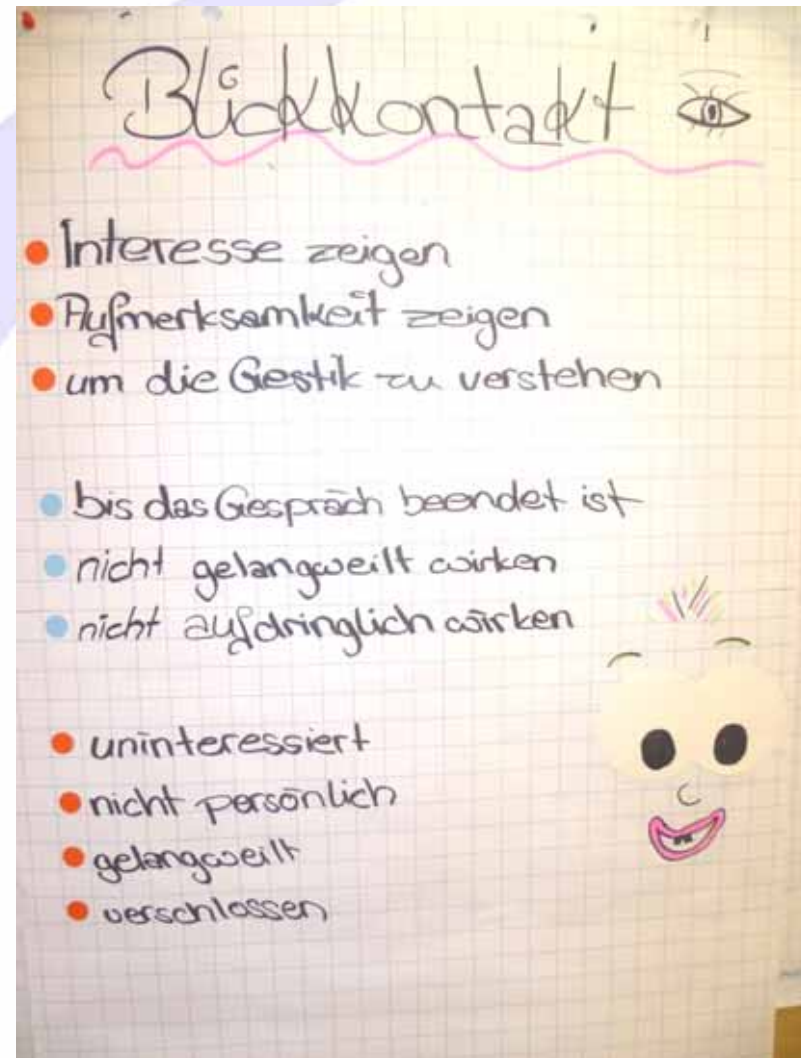 Blickkontakt
Interesse zeigen
Aufmerksamkeit zeigen
um die Gestik zu verstehen
bis das Gespräch beendet ist
nicht gelangweilt wirken
nicht aufdringlich wirken
uninteressiert
nicht persönlich
gelangweilt
verschlossen